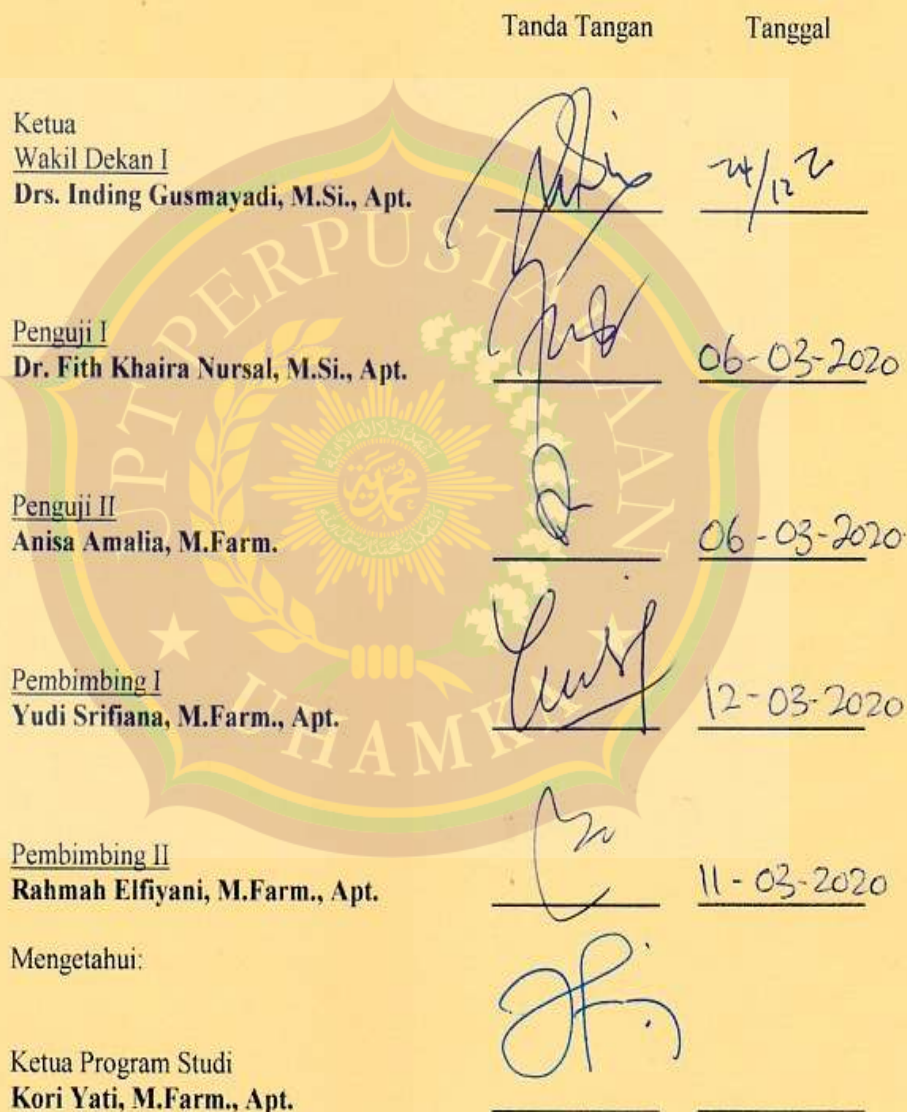 Tanda Tangan Tanggal
Ketua
Wakil Dekan I
Drs. Inding Gusmayadi, M.Si., Apt.
24/12
Penguji I
Dr. Fith Khaira Nursal, M.Si., Apt.
06-03-2020
Penguji II
Anisa Amalia, M.Farm.
06-03-2020
Pembimbing I
Yudi Srifiana, M.Farm., Apt.
12-03-2020
Pembimbing II
Rahmah Elfiyani, M.Farm., Apt.
11-03-2020
Mengetahui:
Ketua Program Studi
Kori Yati, M.Farm., Apt.
UPT PERPUSTAKAAN
UHAMKA